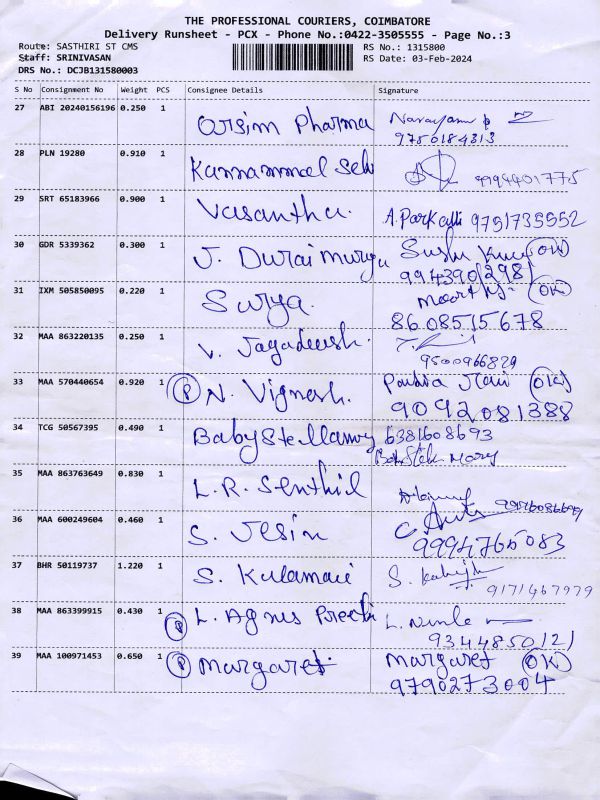 THE PROFESSIONAL COURIERS, COIMBATORE
Delivery Runsheet - PCX - Phone No.:0422-3505555 - Page No.:3
Route: SASTHIRI ST CMS RS No.: 1315800
Staff: SRINIVASAN RS Date: 03-Feb-2024
DRS No.: DCJB131580003
S No Consignment No Weight PCS Consignee Details Signature
27 ABI 20240156196 0.250 1 Orsim Pharma Narayani
9750184313
28 PLN 19280 0.910 1 Kannammal Selvi 9994401775
29 SRT 65183966 0.900 1 Vasantha. A.Parkavi 9751735552
30 GDR 5339362 0.300 1 J. Durai Murugu OK
9943901298
31 IXM 505850095 0.220 1 Surya. OK
8608515678
32 MAA 863220135 0.250 1 V. Jagadeesh.
9500966829
33 MAA 570440654 0.920 1 P N. Vignesh. OK
9092081388
34 TCG 50567395 0.490 1 BabyStellamary 6381608693
Baby Stella Mary
35 MAA 863763649 0.830 1 L.R. Senthil
36 MAA 600249604 0.460 1 S. Jesin
9994765083
37 BHR 50119737 1.220 1 S. Kulamani S.
9171467979
38 MAA 863399915 0.430 1 P L. Agnus Preethi L.
9344850121
39 MAA 100971453 0.650 1 P Margaret Margaret OK
9790273004